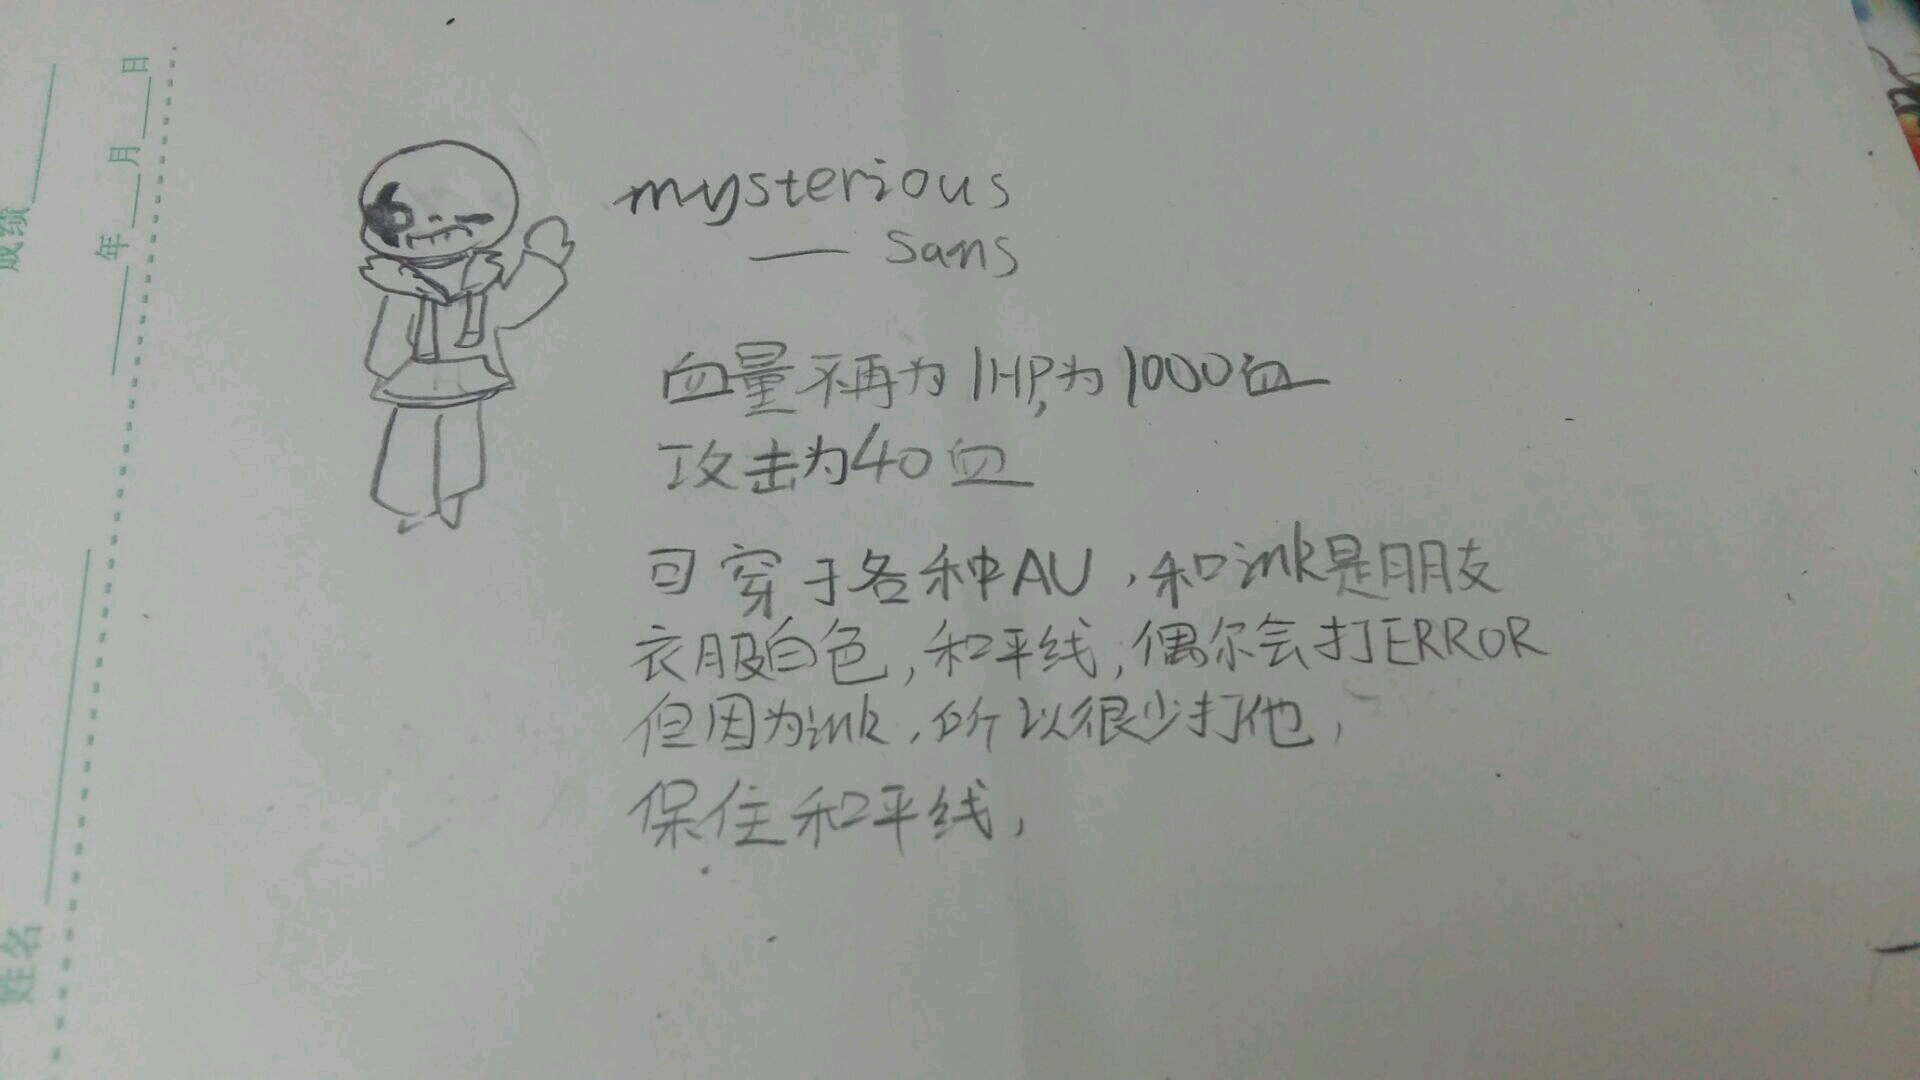 成绩
年 月 日
姓名
mysterious
—— Sans
血量不再为1HP,为1000血
攻击为40血
可穿于各种AU,和ink是朋友
衣服白色,和平线,偶尔会打ERROR
但因为ink,所以很少打他,
保住和平线,